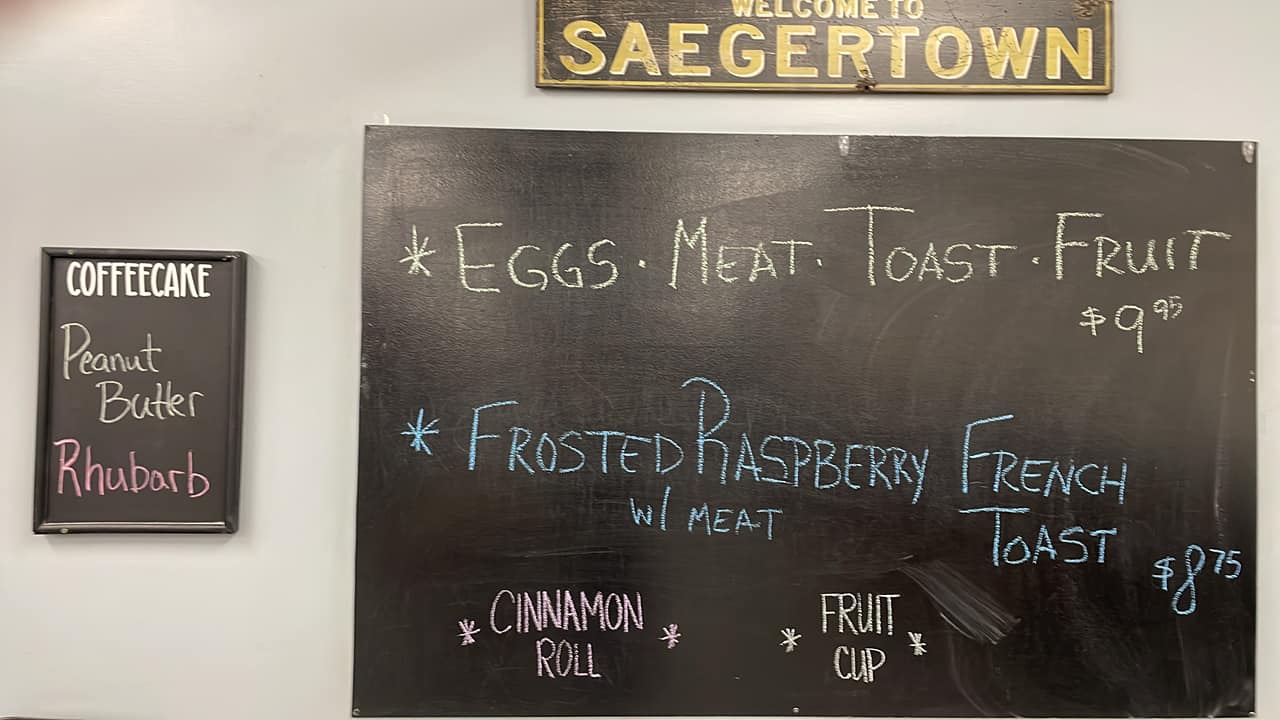 WELCOME TO
SAEGERTOWN
COFFEECAKE
Peanut
Butter
Rhubarb
* EGGS · MEAT · TOAST · FRUIT
$9 95
* FROSTED RASPBERRY FRENCH
W/ MEAT
TOAST
$8 75
* CINNAMON *
ROLL
* FRUIT *
CUP